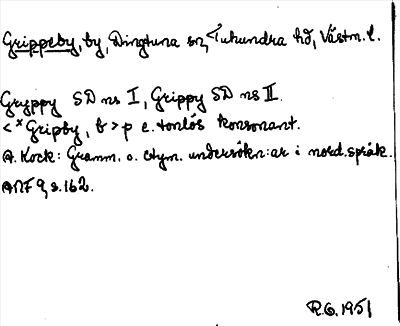 Grippeby, by, Dingtuna sn, Tuhundra hd, Västm. l.
Gryppy SD ns I, Grippy SD ns II.
< *Gripby, b > p e. tonlös konsonant.
A. Kock: Gramm. o. etym. undersökn:ar i nord. språk.
ANF 9, s. 162.
R.G. 1951